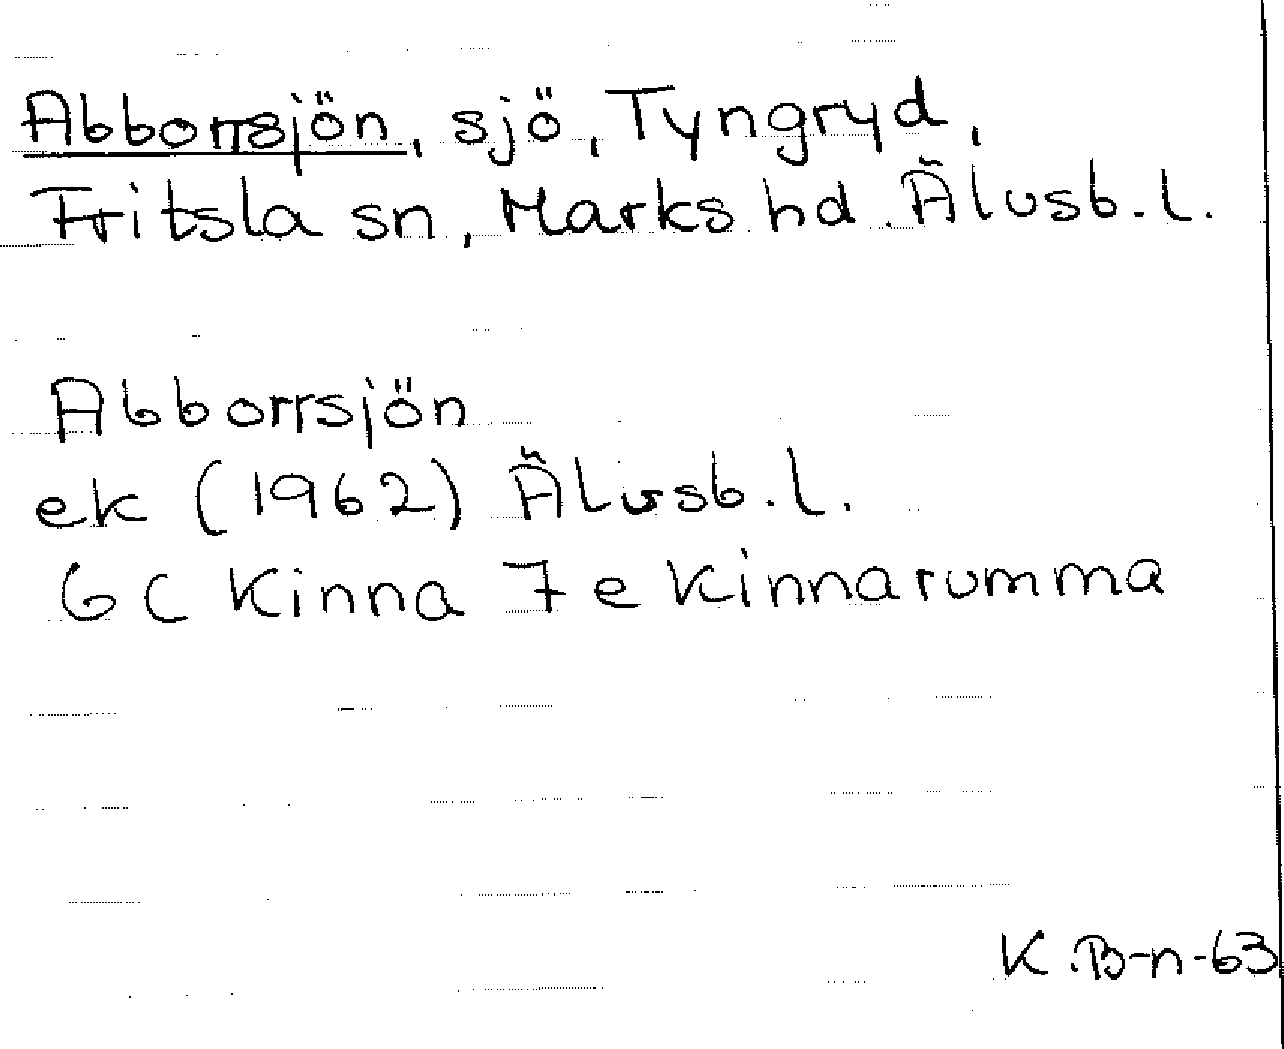 Abborrsjön, sjö, Tyngryd,
Fritsla sn, Marks hd. Älvsb. l.
Abborrsjön
ek (1962) Älvsb. l.
6 C Kinna 7 e Kinnarumma
K. B-n-63